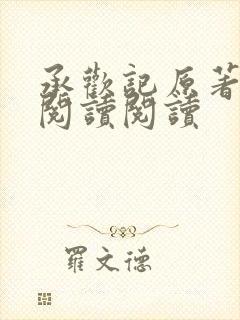 承歡記原著
閱讀閱讀
羅文德